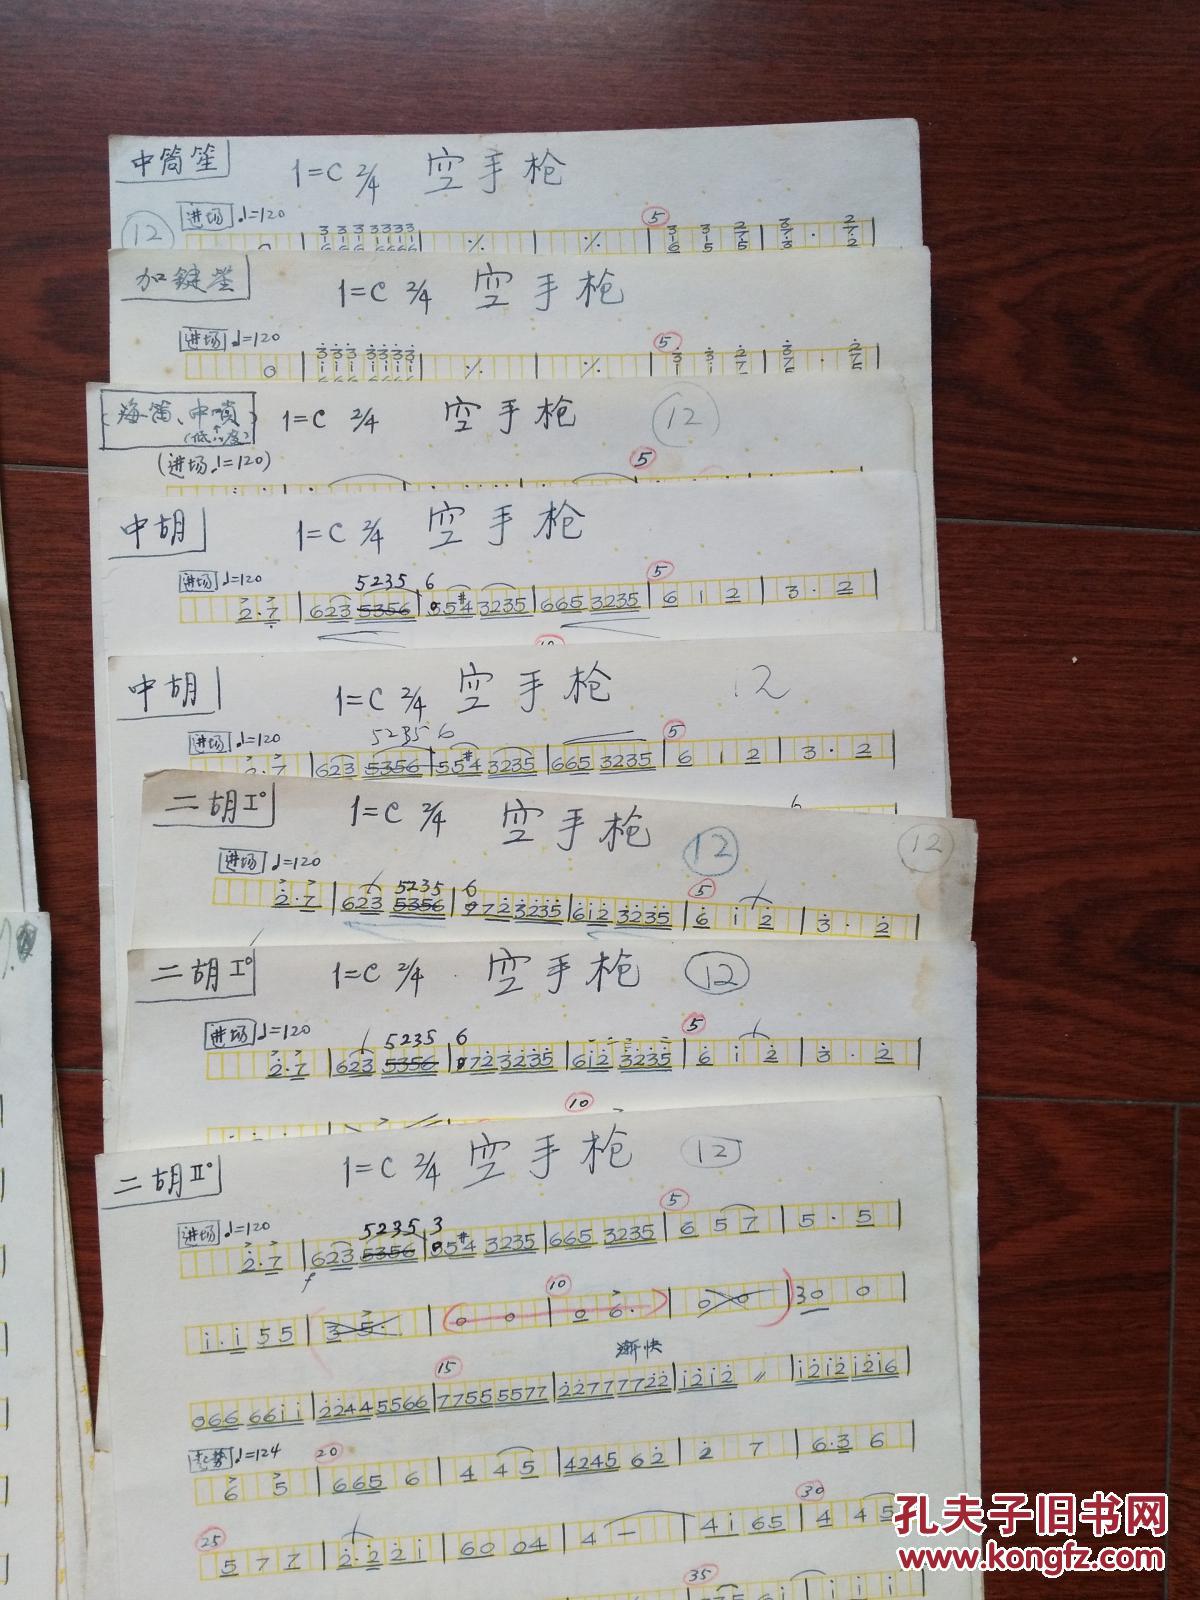 中筒笙 1=C 2/4 空手枪
12 进场 ♩=120 5
加键笙 1=C 2/4 空手枪
进场 ♩=120 5
海笛、中唢 1=C 2/4 空手枪 12
(进场 ♩=120) 5
中胡 1=C 2/4 空手枪
进场 ♩=120 5235 6 5
2·7 | 623 5356 | 55#4 3235 | 665 3235 | 6 1 2 | 3 · 2
中胡 1=C 2/4 空手枪 12
进场 ♩=120 5235 6 5
2·7 | 623 5356 | 55#4 3235 | 665 3235 | 6 1 2 | 3 · 2
二胡I° 1=C 2/4 空手枪 12 12
进场 ♩=120 5235 6 5
2·7 | 623 5356 | 772 3235 | 612 3235 | 6 i 2 | 3 · 2
二胡I° 1=C 2/4 空手枪 12
进场 ♩=120 5235 6 5
2·7 | 623 5356 | 772 3235 | 612 3235 | 6 i 2 | 3 · 2
10
二胡II° 1=C 2/4 空手枪 12
进场 ♩=120 5235 3 5
2·7 | 623 5356 | 55#4 3235 | 665 3235 | 6 5 7 | 5 · 5
f
10
i·i 55 | 3 5· | 0 0 | 0 6· | 0 0 | 30 0
15 渐快
066 66ii | 2244 5566 | 7755 5577 | 2277 7722 | i2i2 〃 | i2i2 i2i6
起势 ♩=124 20
6 5 | 665 6 | 4 45 | 4245 62 | 2 7 | 6·3 6
25 30
5 7 7 | 2·2 2i | 60 04 | 4 — | 4i 65 | 4 45
35
孔夫子旧书网
www.kongfz.com